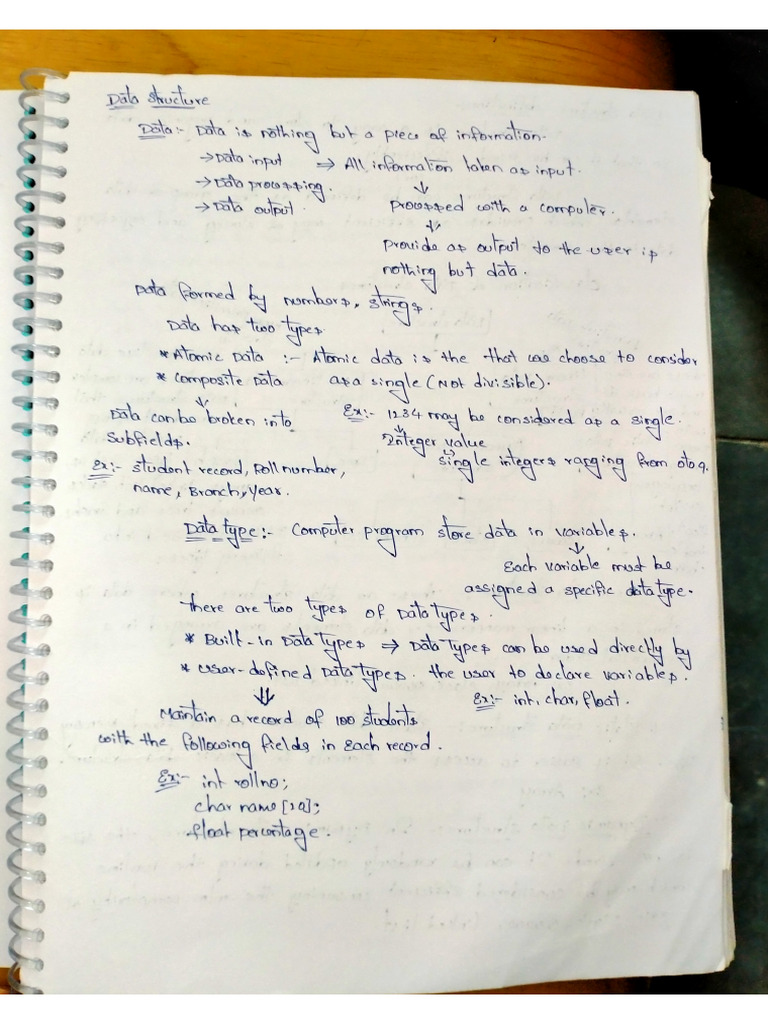 Data structure
Data :- Data is nothing but a piece of information.
→ Data input ⇒ All information taken as input.
→ Data processing. ↓
→ Data output. processed with a computer.
↓
provide as output to the user is
nothing but data.
Data formed by numbers, strings.
Data has two types
* Atomic Data :- Atomic data is the that we choose to consider
* composite Data as a single (Not divisible).
↓
Data can be broken into
subfields.
Ex:- student record, Roll number,
name, Branch, year.
Ex:- 1234 may be considered as a single.
↓
Integer value
↪ single integers ranging from 0 to 9.
Data type :- Computer program store data in variables.
↓
Each variable must be
assigned a specific data type.
There are two types of Data types.
* Built-in Data types ⇒ Data types can be used directly by
* user-defined Data types. the user to declare variables.
⇓ Ex:- int, char, float.
Maintain a record of 100 students
with the following fields in Each record.
Ex:- int rollno;
char name[20];
float percentage.